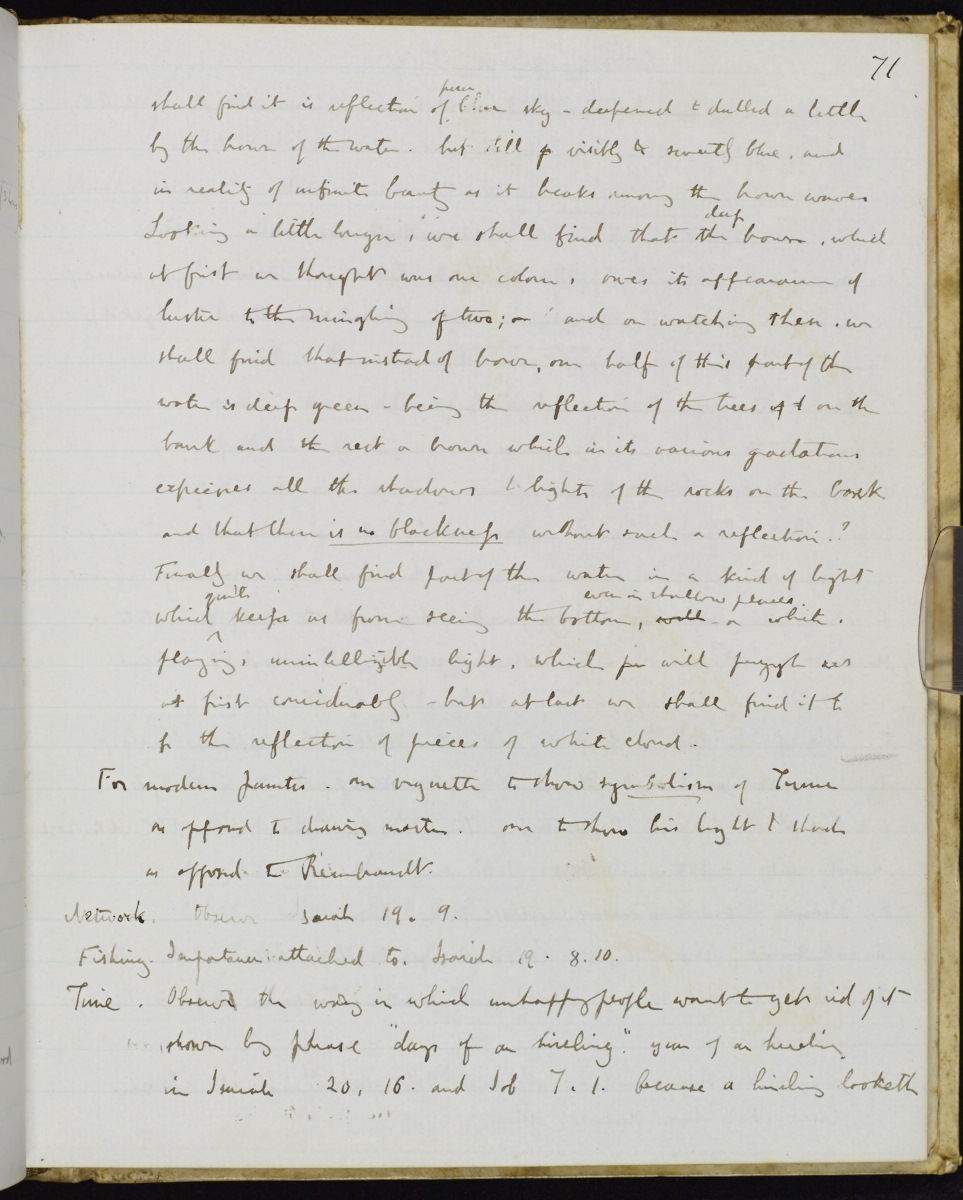 71
pure
shall find it is reflection of blue sky - deepened & dulled a little
by the brown of the water. but still p visibly & sweetly blue, and
in reality of infinite beauty as it breaks among the brown waves
deep
Looking a little longer, we shall find that the brown, which
at first we thought was one colour, owes its appearance of
lustre to the mingling of two; and on watching these, we
shall find that instead of brown, one half of this part of the
water is deep green - being the reflection of the trees on the
bank and the rest a brown which in its various gradations
expresses all the shadows & lights of the rocks on the bank
and that there is no blackness without such a reflection.?
Finally we shall find part of the water in a kind of light
quite even in shallow places.
which keeps us from seeing the bottom, a white,
playing, unintelligible light, which will puzzle us
at first considerably - but at last we shall find it to
be the reflection of pieces of white cloud.
For modern painters. one vignette to show symbolism of Turner
as opposed to drawing master. one to show his light & shade
as opposed to Rembrandt.
Network. Observe Isaiah 19. 9.
Fishing. Importance attached to. Isaiah 19. 8. 10.
Time. Observe the way in which unhappy people want to get rid of it
shown by phrase "days of an hireling". year of an hireling
in Isaiah 20, 16. and Job 7. 1. because a hireling looketh